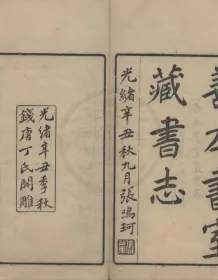 善本書室
藏書志
光緒辛丑秋九月張鳴珂
光緒辛丑季秋
錢唐丁氏開雕